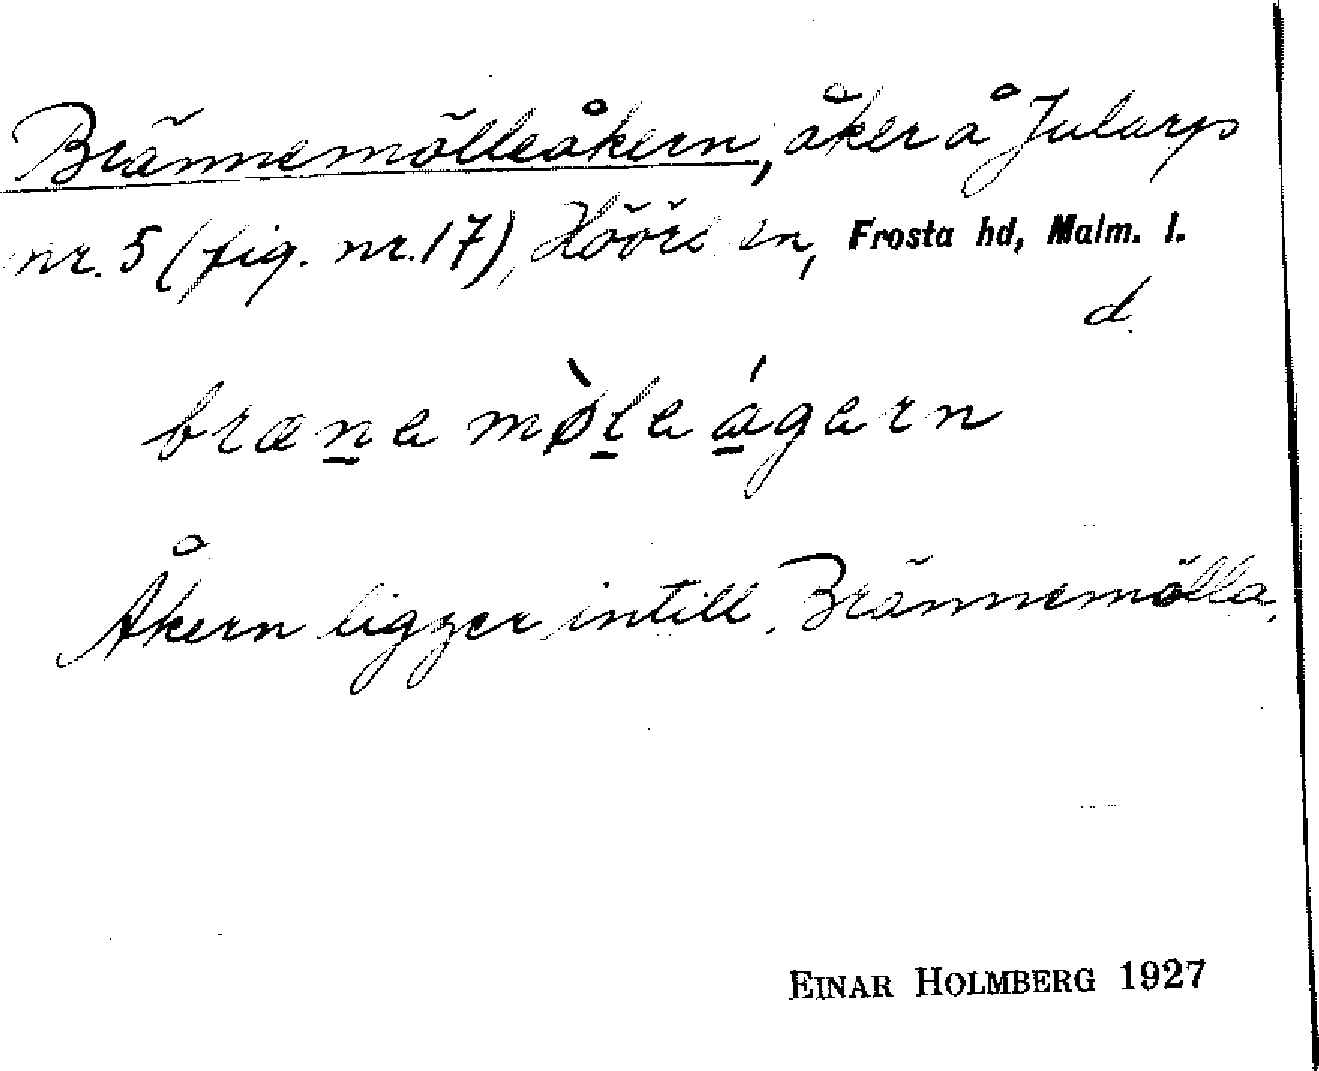 Brännemölleåkern, åker å Jularp
nr. 5 (fig. nr. 17), Höörs sn, Frosta hd, Malm. l.
d.
bræn̲e mø̀l̲e á̲gern
Åkern ligger intill Brännemölla.
EINAR HOLMBERG 1927